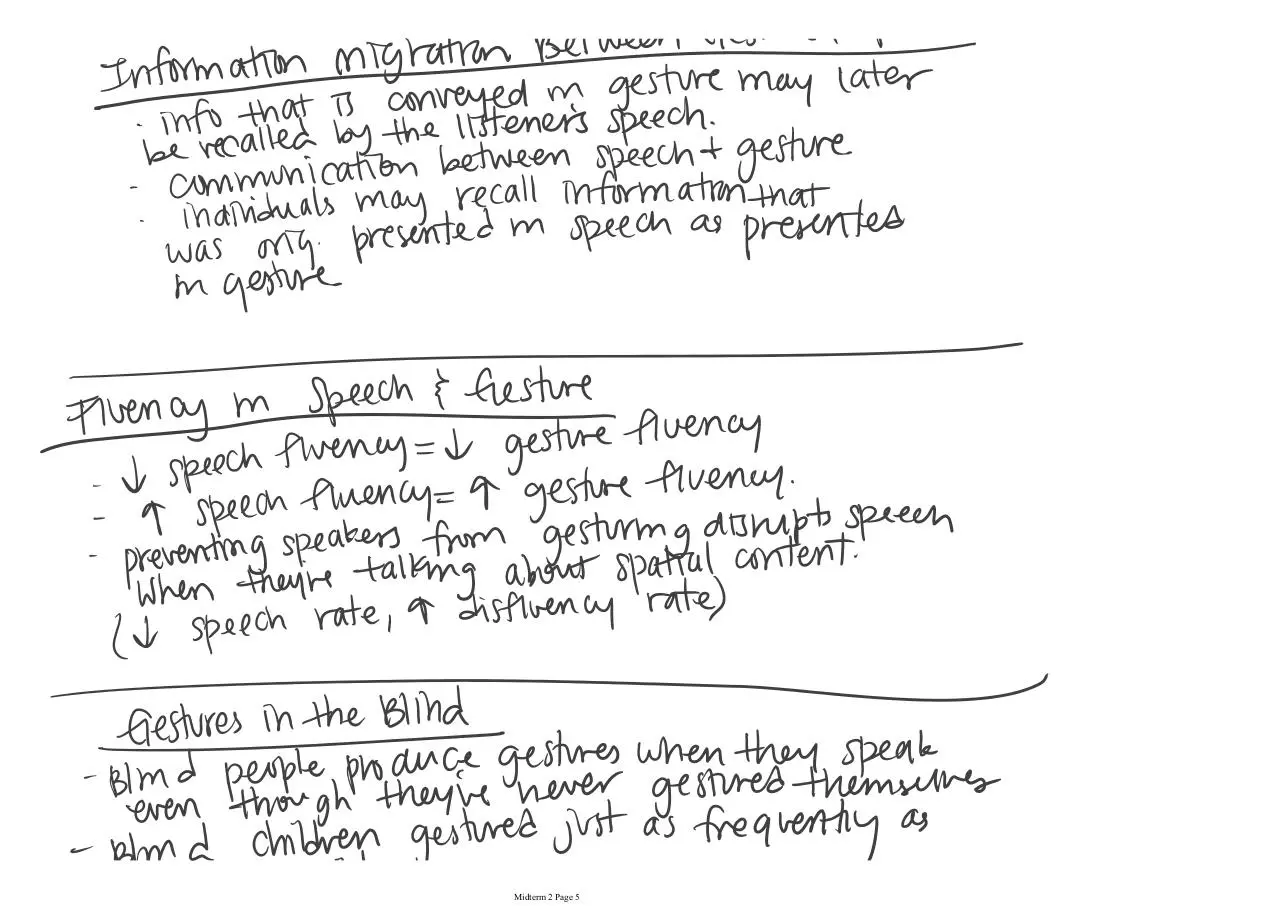 Information migration Between
· info that is conveyed in gesture may later
be recalled by the listener's speech.
- communication between speech + gesture
· individuals may recall information that
was orig. presented in speech as presented
in gesture
Fluency in Speech & Gesture
- ↓ speech fluency = ↓ gesture fluency
- ↑ speech fluency = ↑ gesture fluency.
- preventing speakers from gesturing disrupts speech
when they're talking about spatial content.
(↓ speech rate, ↑ disfluency rate)
Gestures in the Blind
- Blind people produce gestures when they speak
even though they've never gestured themselves
- Blind children gestured just as frequently as
Midterm 2 Page 5